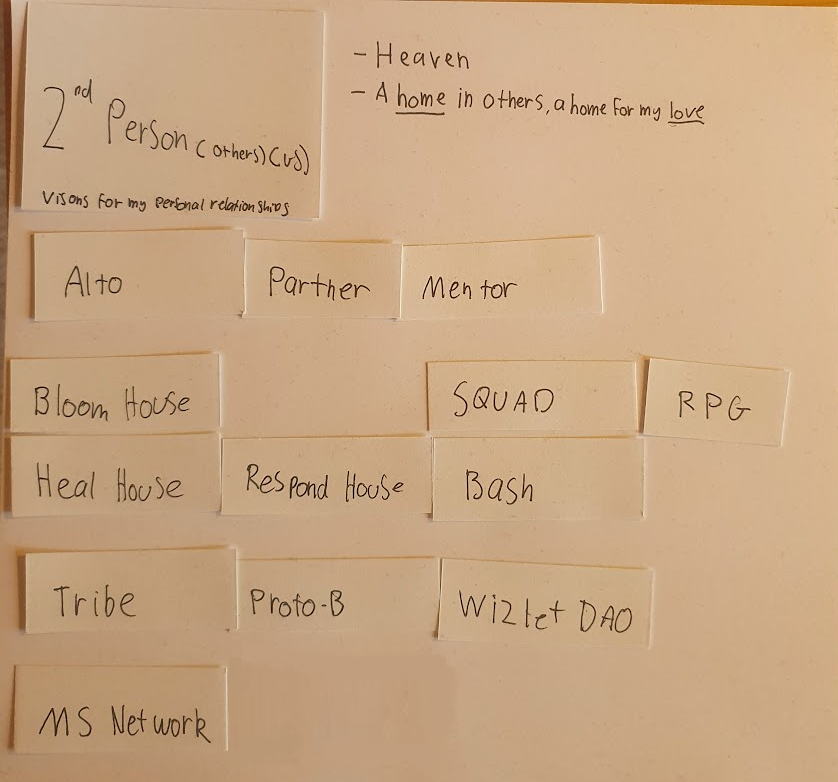 2nd Person (others) (us)
Visons for my personal relationships
- Heaven
- A home in others, a home for my love
Alto
Partner
Mentor
Bloom House
SQUAD
RPG
Heal House
Respond House
Bash
Tribe
Proto-B
Wizlet DAO
MS Network